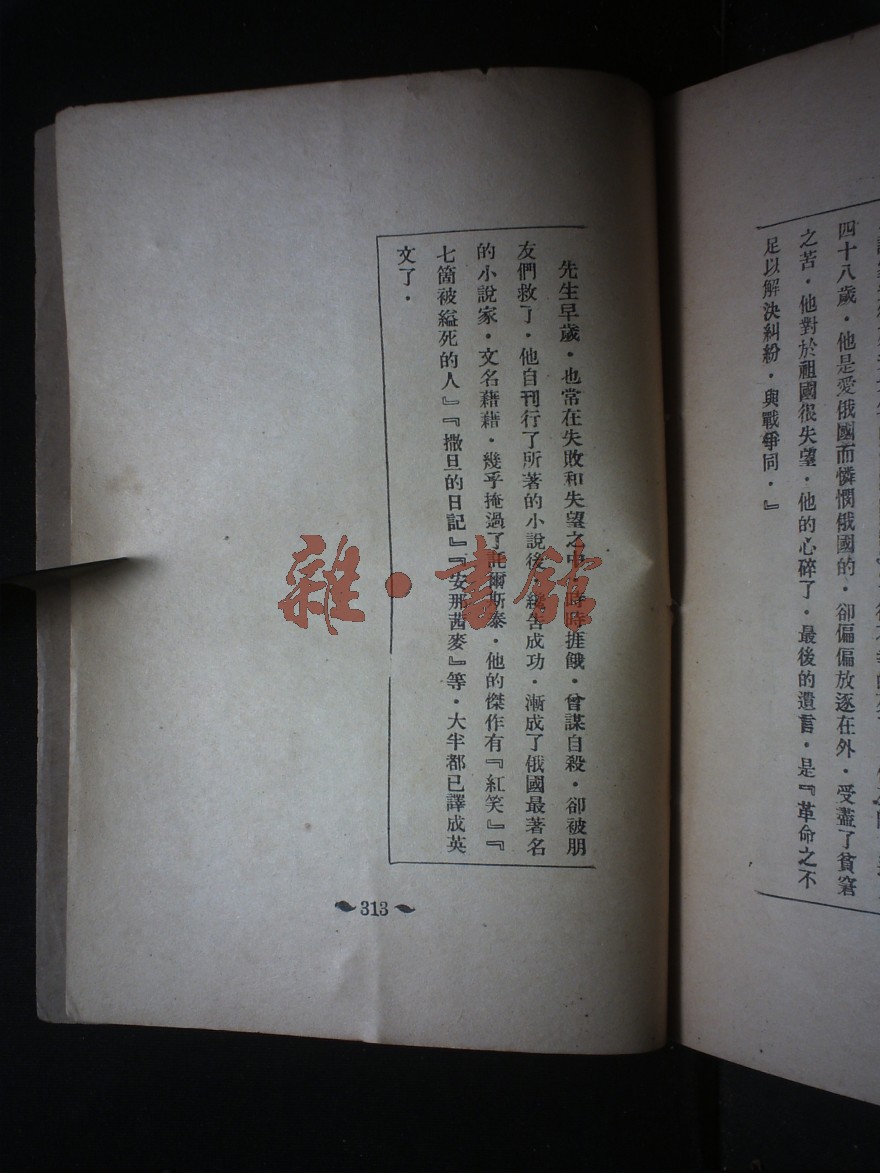 四十八歲．他是愛俄國而憐憫俄國的．卻偏偏放逐在外．受盡了貧窘
之苦．他對於祖國很失望．他的心碎了．最後的遺言．是『革命之不
足以解決糾紛．與戰爭同．』
先生早歲．也常在失敗和失望之中．時時捱餓．曾謀自殺．卻被朋
友們救了．他自刊行了所著的小說後．纔告成功．漸成了俄國最著名
的小說家．文名藉藉．幾乎掩過了託爾斯泰．他的傑作有『紅笑』『
七箇被縊死的人』『撒旦的日記』『安那茜麥』等．大半都已譯成英
文了．
313
雜·書館